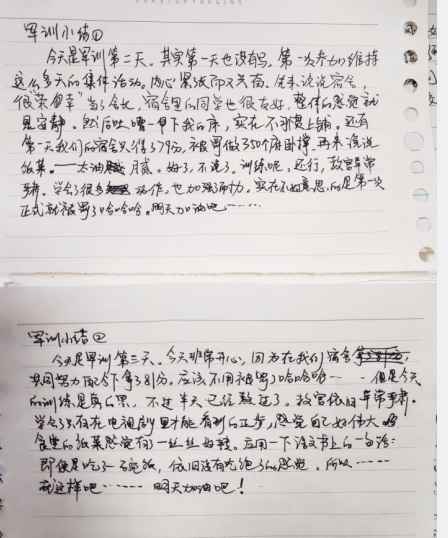 军训小结①
今天是军训第二天。其实第一天也没有写。第一次参加维持
这么多天的集体活动。内心紧张而又兴奋。先来说说宿舍,
很"荣幸"当了舍长,宿舍里的同学也很友好,整体的感觉就
是安静。然后吐嘈一下我的床,实在不习惯上铺。还有
第一天我们的宿舍只得了79分,被罚做了50个俯卧撑。再来说说
饭菜。——太油腻。好了,不说了。训练呢,还行,教官非常
严肃。学会了很多动作,也加强耐力。实在不好意思的是第一次
正式就被罚了哈哈哈。明天加油吧……
军训小结②
今天是军训第三天。今天非常开心,因为在我们宿舍
共同努力配合下拿了81分。应该不用被罚了哈哈哈……但是今天
的训练是真的累,不过半天已经熬过了。教官依旧非常严肃。
学会了只有在电视剧里才能看到的正步,感觉自己好伟大
食堂的饭菜感觉有了一丝丝好转。应用一下语文书上的一句话:
即便是吃了一大碗饭,依旧没有吃饱了的感觉。所以……
就这样吧……明天加油吧!